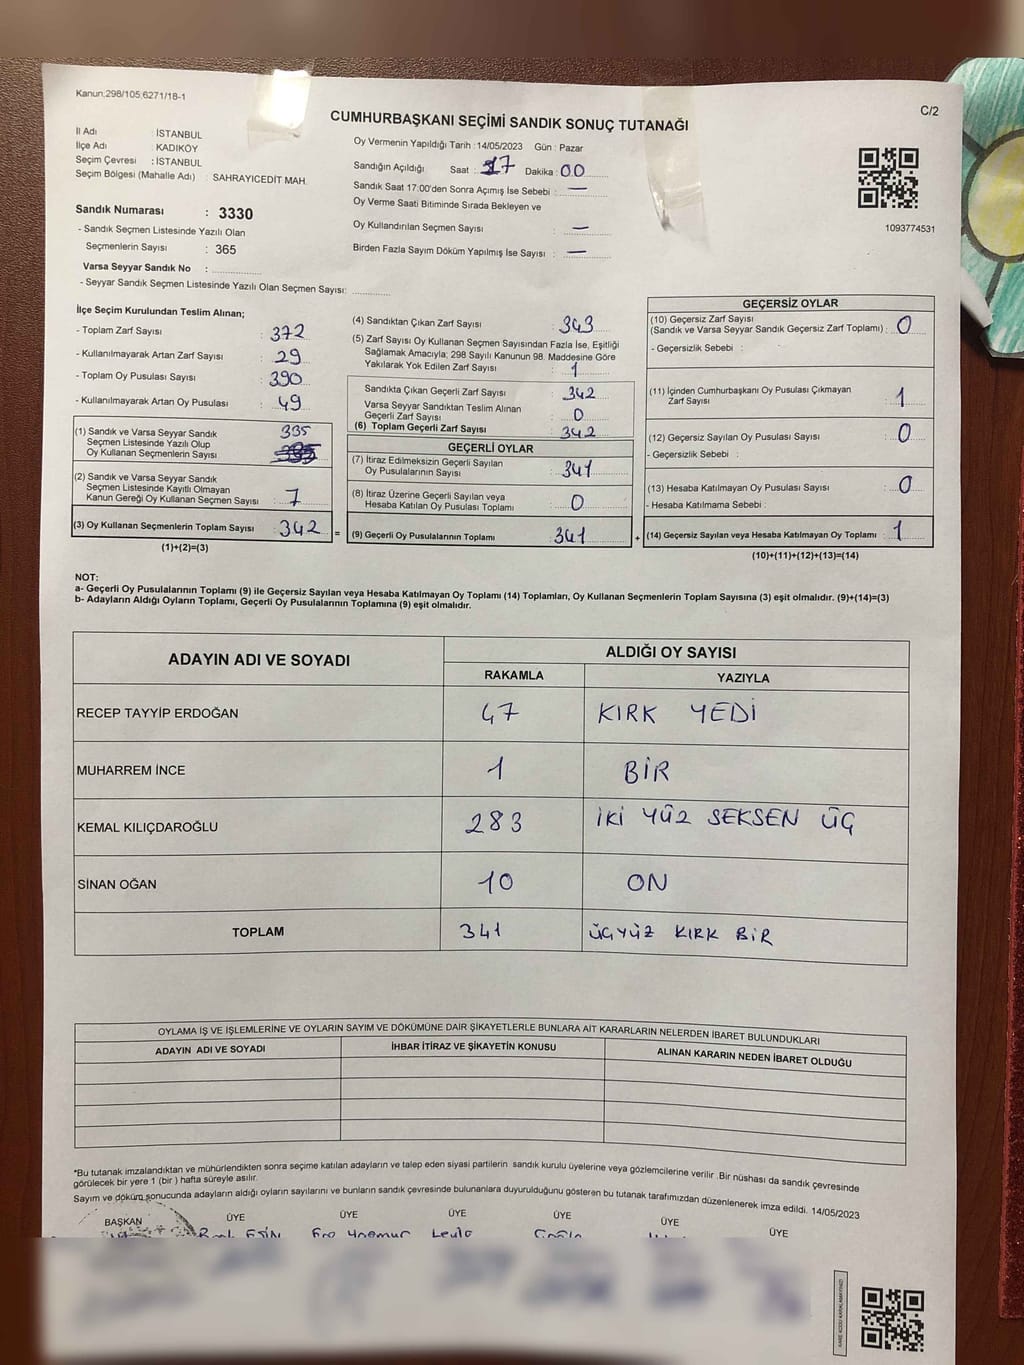 Kanun;298/105;6271/18-1
C/2
CUMHURBAŞKANI SEÇİMİ SANDIK SONUÇ TUTANAĞI
İl Adı : İSTANBUL
İlçe Adı : KADIKÖY
Seçim Çevresi : İSTANBUL
Seçim Bölgesi (Mahalle Adı) : SAHRAYICEDİT MAH.
Sandık Numarası : 3330
- Sandık Seçmen Listesinde Yazılı Olan
Seçmenlerin Sayısı : 365
Varsa Seyyar Sandık No :
- Seyyar Sandık Seçmen Listesinde Yazılı Olan Seçmen Sayısı:
Oy Vermenin Yapıldığı Tarih : 14/05/2023 Gün : Pazar
Sandığın Açıldığı Saat : 17 Dakika : 00
Sandık Saat 17:00'den Sonra Açımış İse Sebebi : —
Oy Verme Saati Bitiminde Sırada Bekleyen ve
Oy Kullandırılan Seçmen Sayısı : —
Birden Fazla Sayım Döküm Yapılmış İse Sayısı : —
1093774531
İlçe Seçim Kurulundan Teslim Alınan;
- Toplam Zarf Sayısı : 372
- Kullanılmayarak Artan Zarf Sayısı : 29
- Toplam Oy Pusulası Sayısı : 390
- Kullanılmayarak Artan Oy Pusulası : 49
(1) Sandık ve Varsa Seyyar Sandık
Seçmen Listesinde Yazılı Olup
Oy Kullanan Seçmenlerin Sayısı : 335
(2) Sandık ve Varsa Seyyar Sandık
Seçmen Listesinde Kayıtlı Olmayan
Kanun Gereği Oy Kullanan Seçmen Sayısı : 7
(3) Oy Kullanan Seçmenlerin Toplam Sayısı : 342 =
(1)+(2)=(3)
(4) Sandıktan Çıkan Zarf Sayısı : 343
(5) Zarf Sayısı Oy Kullanan Seçmen Sayısından Fazla İse, Eşitliği
Sağlamak Amacıyla; 298 Sayılı Kanunun 98. Maddesine Göre
Yakılarak Yok Edilen Zarf Sayısı : 1
Sandıkta Çıkan Geçerli Zarf Sayısı : 342
Varsa Seyyar Sandıktan Teslim Alınan
Geçerli Zarf Sayısı : 0
(6) Toplam Geçerli Zarf Sayısı : 342
GEÇERLİ OYLAR
(7) İtiraz Edilmeksizin Geçerli Sayılan
Oy Pusulalarının Sayısı : 341
(8) İtiraz Üzerine Geçerli Sayılan veya
Hesaba Katılan Oy Pusulası Toplamı : 0
(9) Geçerli Oy Pusulalarının Toplamı : 341 +
GEÇERSİZ OYLAR
(10) Geçersiz Zarf Sayısı
(Sandık ve Varsa Seyyar Sandık Geçersiz Zarf Toplamı) : 0
- Geçersizlik Sebebi :
(11) İçinden Cumhurbaşkanı Oy Pusulası Çıkmayan
Zarf Sayısı : 1
(12) Geçersiz Sayılan Oy Pusulası Sayısı : 0
- Geçersizlik Sebebi :
(13) Hesaba Katılmayan Oy Pusulası Sayısı : 0
- Hesaba Katılmama Sebebi :
(14) Geçersiz Sayılan veya Hesaba Katılmayan Oy Toplamı : 1
(10)+(11)+(12)+(13)=(14)
NOT:
a- Geçerli Oy Pusulalarının Toplamı (9) ile Geçersiz Sayılan veya Hesaba Katılmayan Oy Toplamı (14) Toplamları, Oy Kullanan Seçmenlerin Toplam Sayısına (3) eşit olmalıdır. (9)+(14)=(3)
b- Adayların Aldığı Oyların Toplamı, Geçerli Oy Pusulalarının Toplamına (9) eşit olmalıdır.
ADAYIN ADI VE SOYADI ALDIĞI OY SAYISI
RAKAMLA YAZIYLA
RECEP TAYYİP ERDOĞAN 47 KIRK YEDİ
MUHARREM İNCE 1 BİR
KEMAL KILIÇDAROĞLU 283 İKİ YÜZ SEKSEN ÜÇ
SİNAN OĞAN 10 ON
TOPLAM 341 ÜÇYÜZ KIRK BİR
OYLAMA İŞ VE İŞLEMLERİNE VE OYLARIN SAYIM VE DÖKÜMÜNE DAİR ŞİKAYETLERLE BUNLARA AİT KARARLARIN NELERDEN İBARET BULUNDUKLARI
ADAYIN ADI VE SOYADI İHBAR İTİRAZ VE ŞİKAYETİN KONUSU ALINAN KARARIN NEDEN İBARET OLDUĞU
*Bu tutanak imzalandıktan ve mühürlendikten sonra seçime katılan adayların ve talep eden siyasi partilerin sandık kurulu üyelerine veya gözlemcilerine verilir .Bir nüshası da sandık çevresinde
görülecek bir yere 1 (bir ) hafta süreyle asılır.
Sayım ve döküm sonucunda adayların aldığı oyların sayılarını ve bunların sandık çevresinde bulunanlara duyurulduğunu gösteren bu tutanak tarafımızdan düzenlenerek imza edildi. 14/05/2023
BAŞKAN ÜYE ÜYE ÜYE ÜYE ÜYE ÜYE